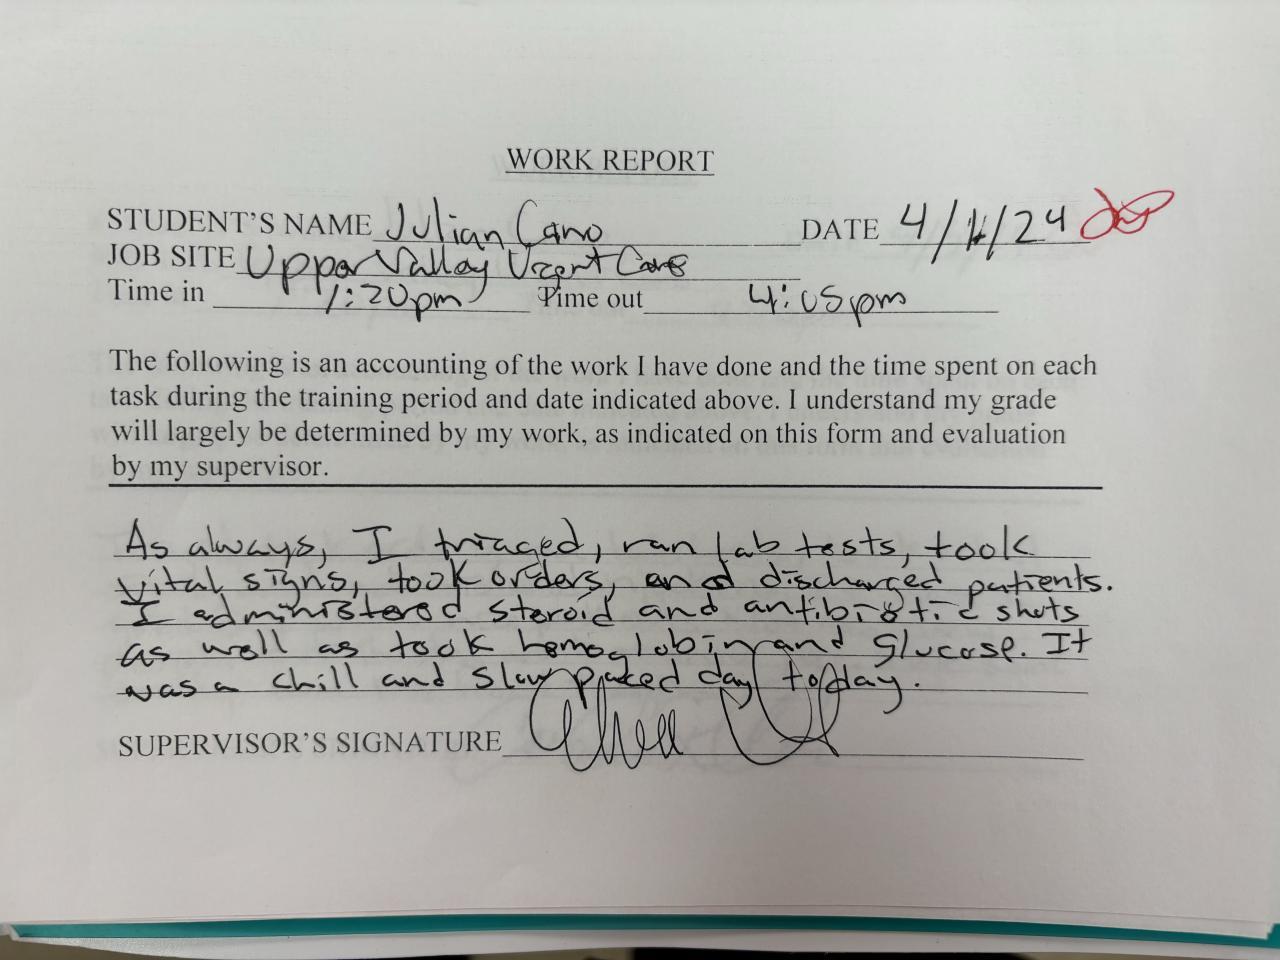 WORK REPORT
STUDENT'S NAME Julian Cano DATE 4/1/24
JOB SITE Upper Valley Urgent Care
Time in 1:20pm Time out 4:05pm
The following is an accounting of the work I have done and the time spent on each
task during the training period and date indicated above. I understand my grade
will largely be determined by my work, as indicated on this form and evaluation
by my supervisor.
As always, I triaged, ran lab tests, took
vital signs, took orders, and discharged patients.
I administered steroid and antibiotic shots
as well as took hemoglobin and glucose. It
was a chill and slow paced day today.
SUPERVISOR'S SIGNATURE